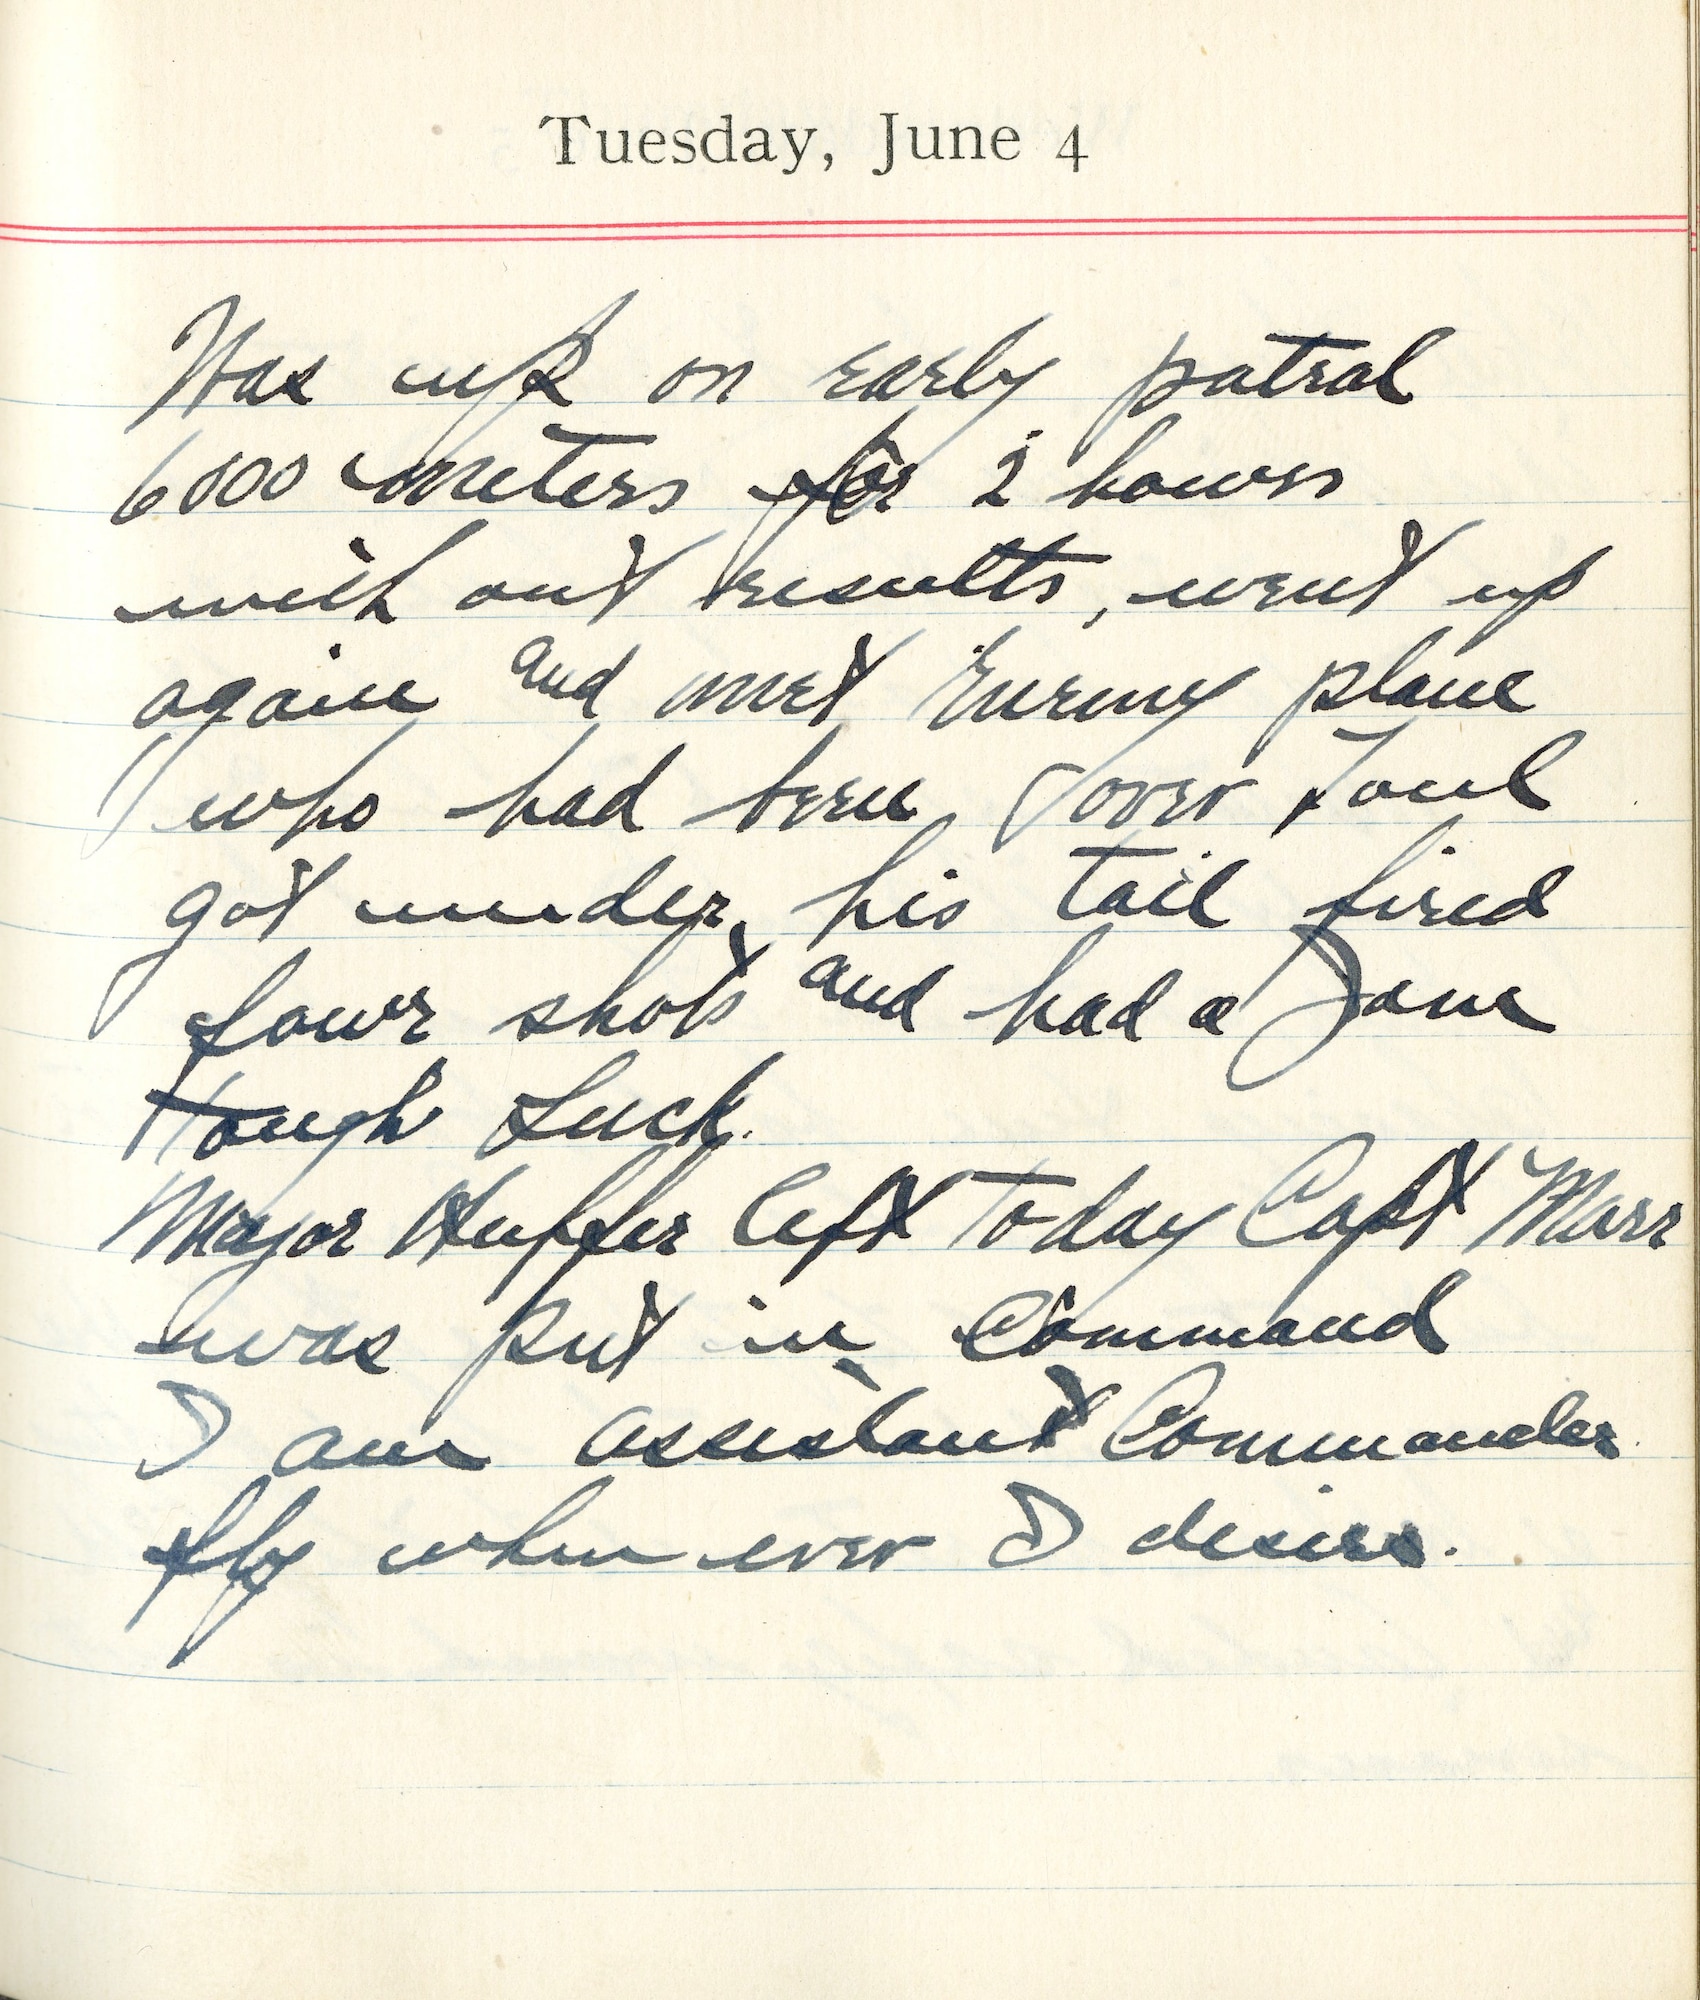 Tuesday, June 4
Was up on early patrol
6000 meters for 2 hours
with out results, went up
again and met Enemy plane
who had been over Toul
got under his tail fired
four shots and had a Jam
tough Luck.
Major Huffer left today Capt Marr
was put in Command
I am assistant Commander.
fly when ever I desire.